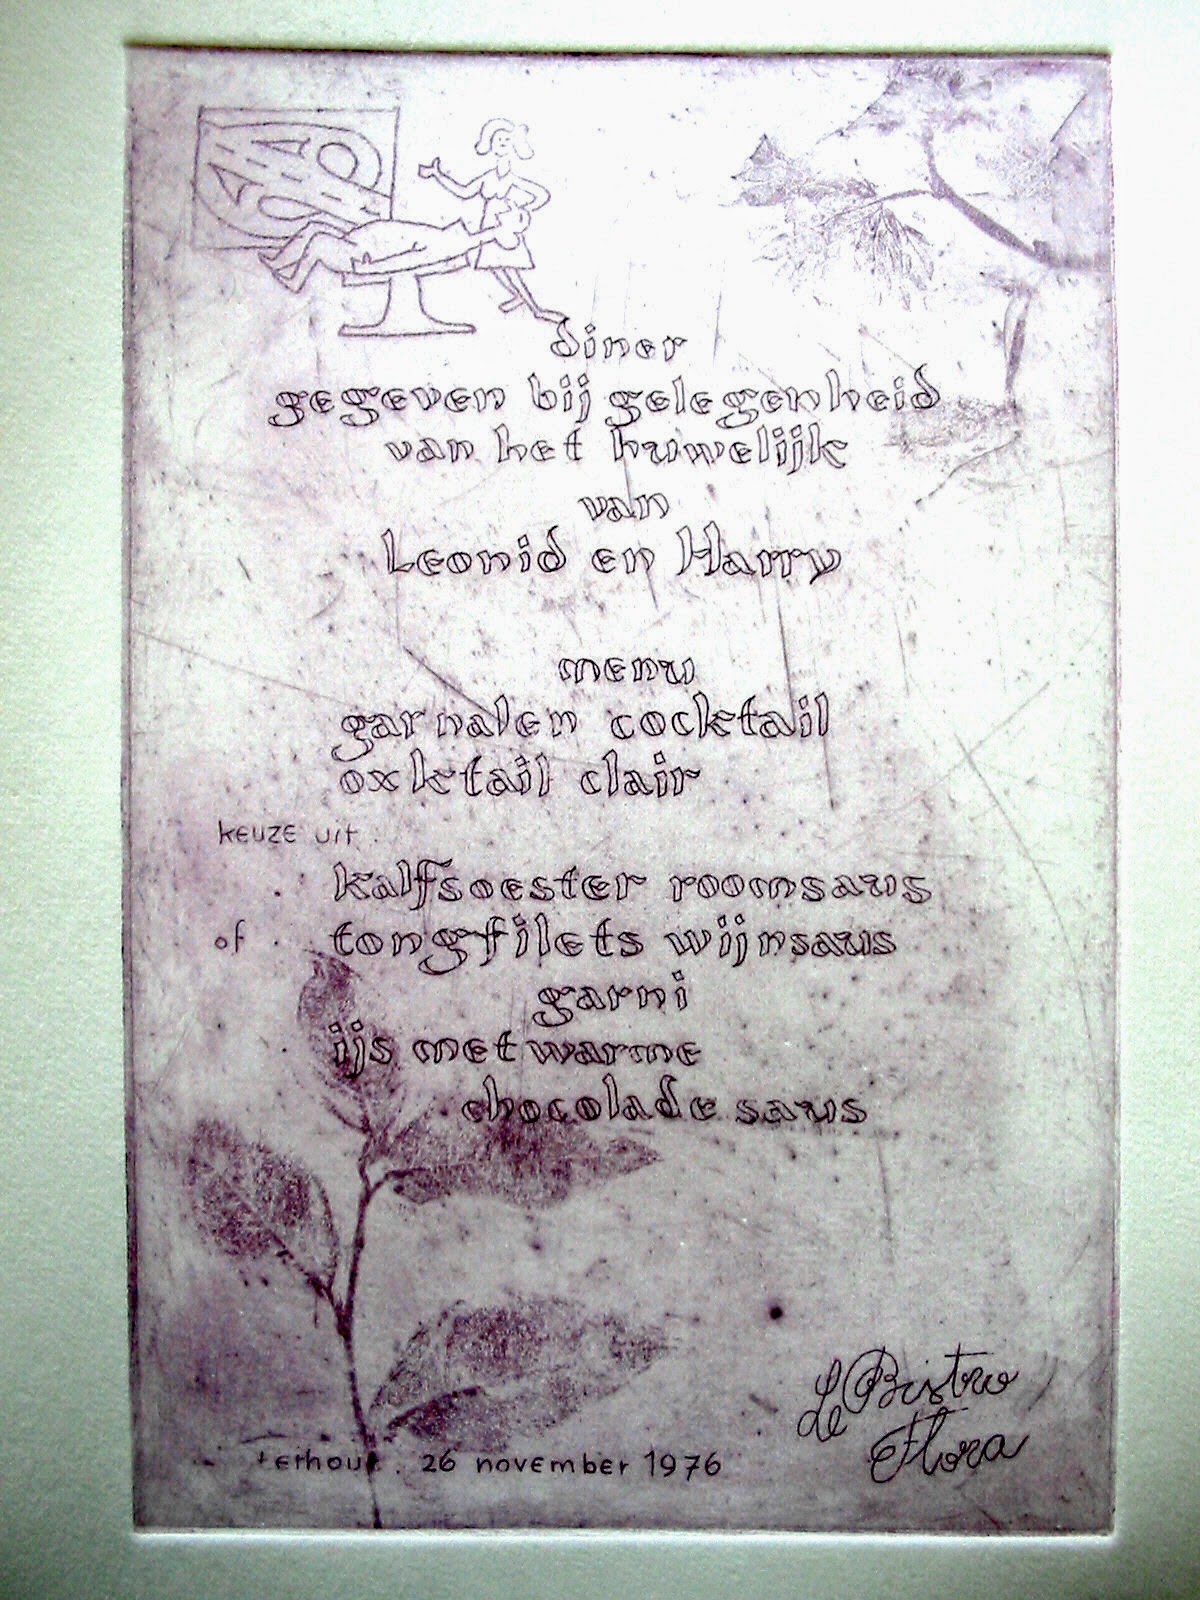 diner
gegeven bij gelegenheid
van het huwelijk
van
Leonid en Harry
menu
garnalen cocktail
oxktail clair
keuze uit.
. kalfsoester roomsaus
of . tongfilets wijnsaus
garni
. ijs met warme
chocolade saus
Le Bistro
Flora
26 november 1976